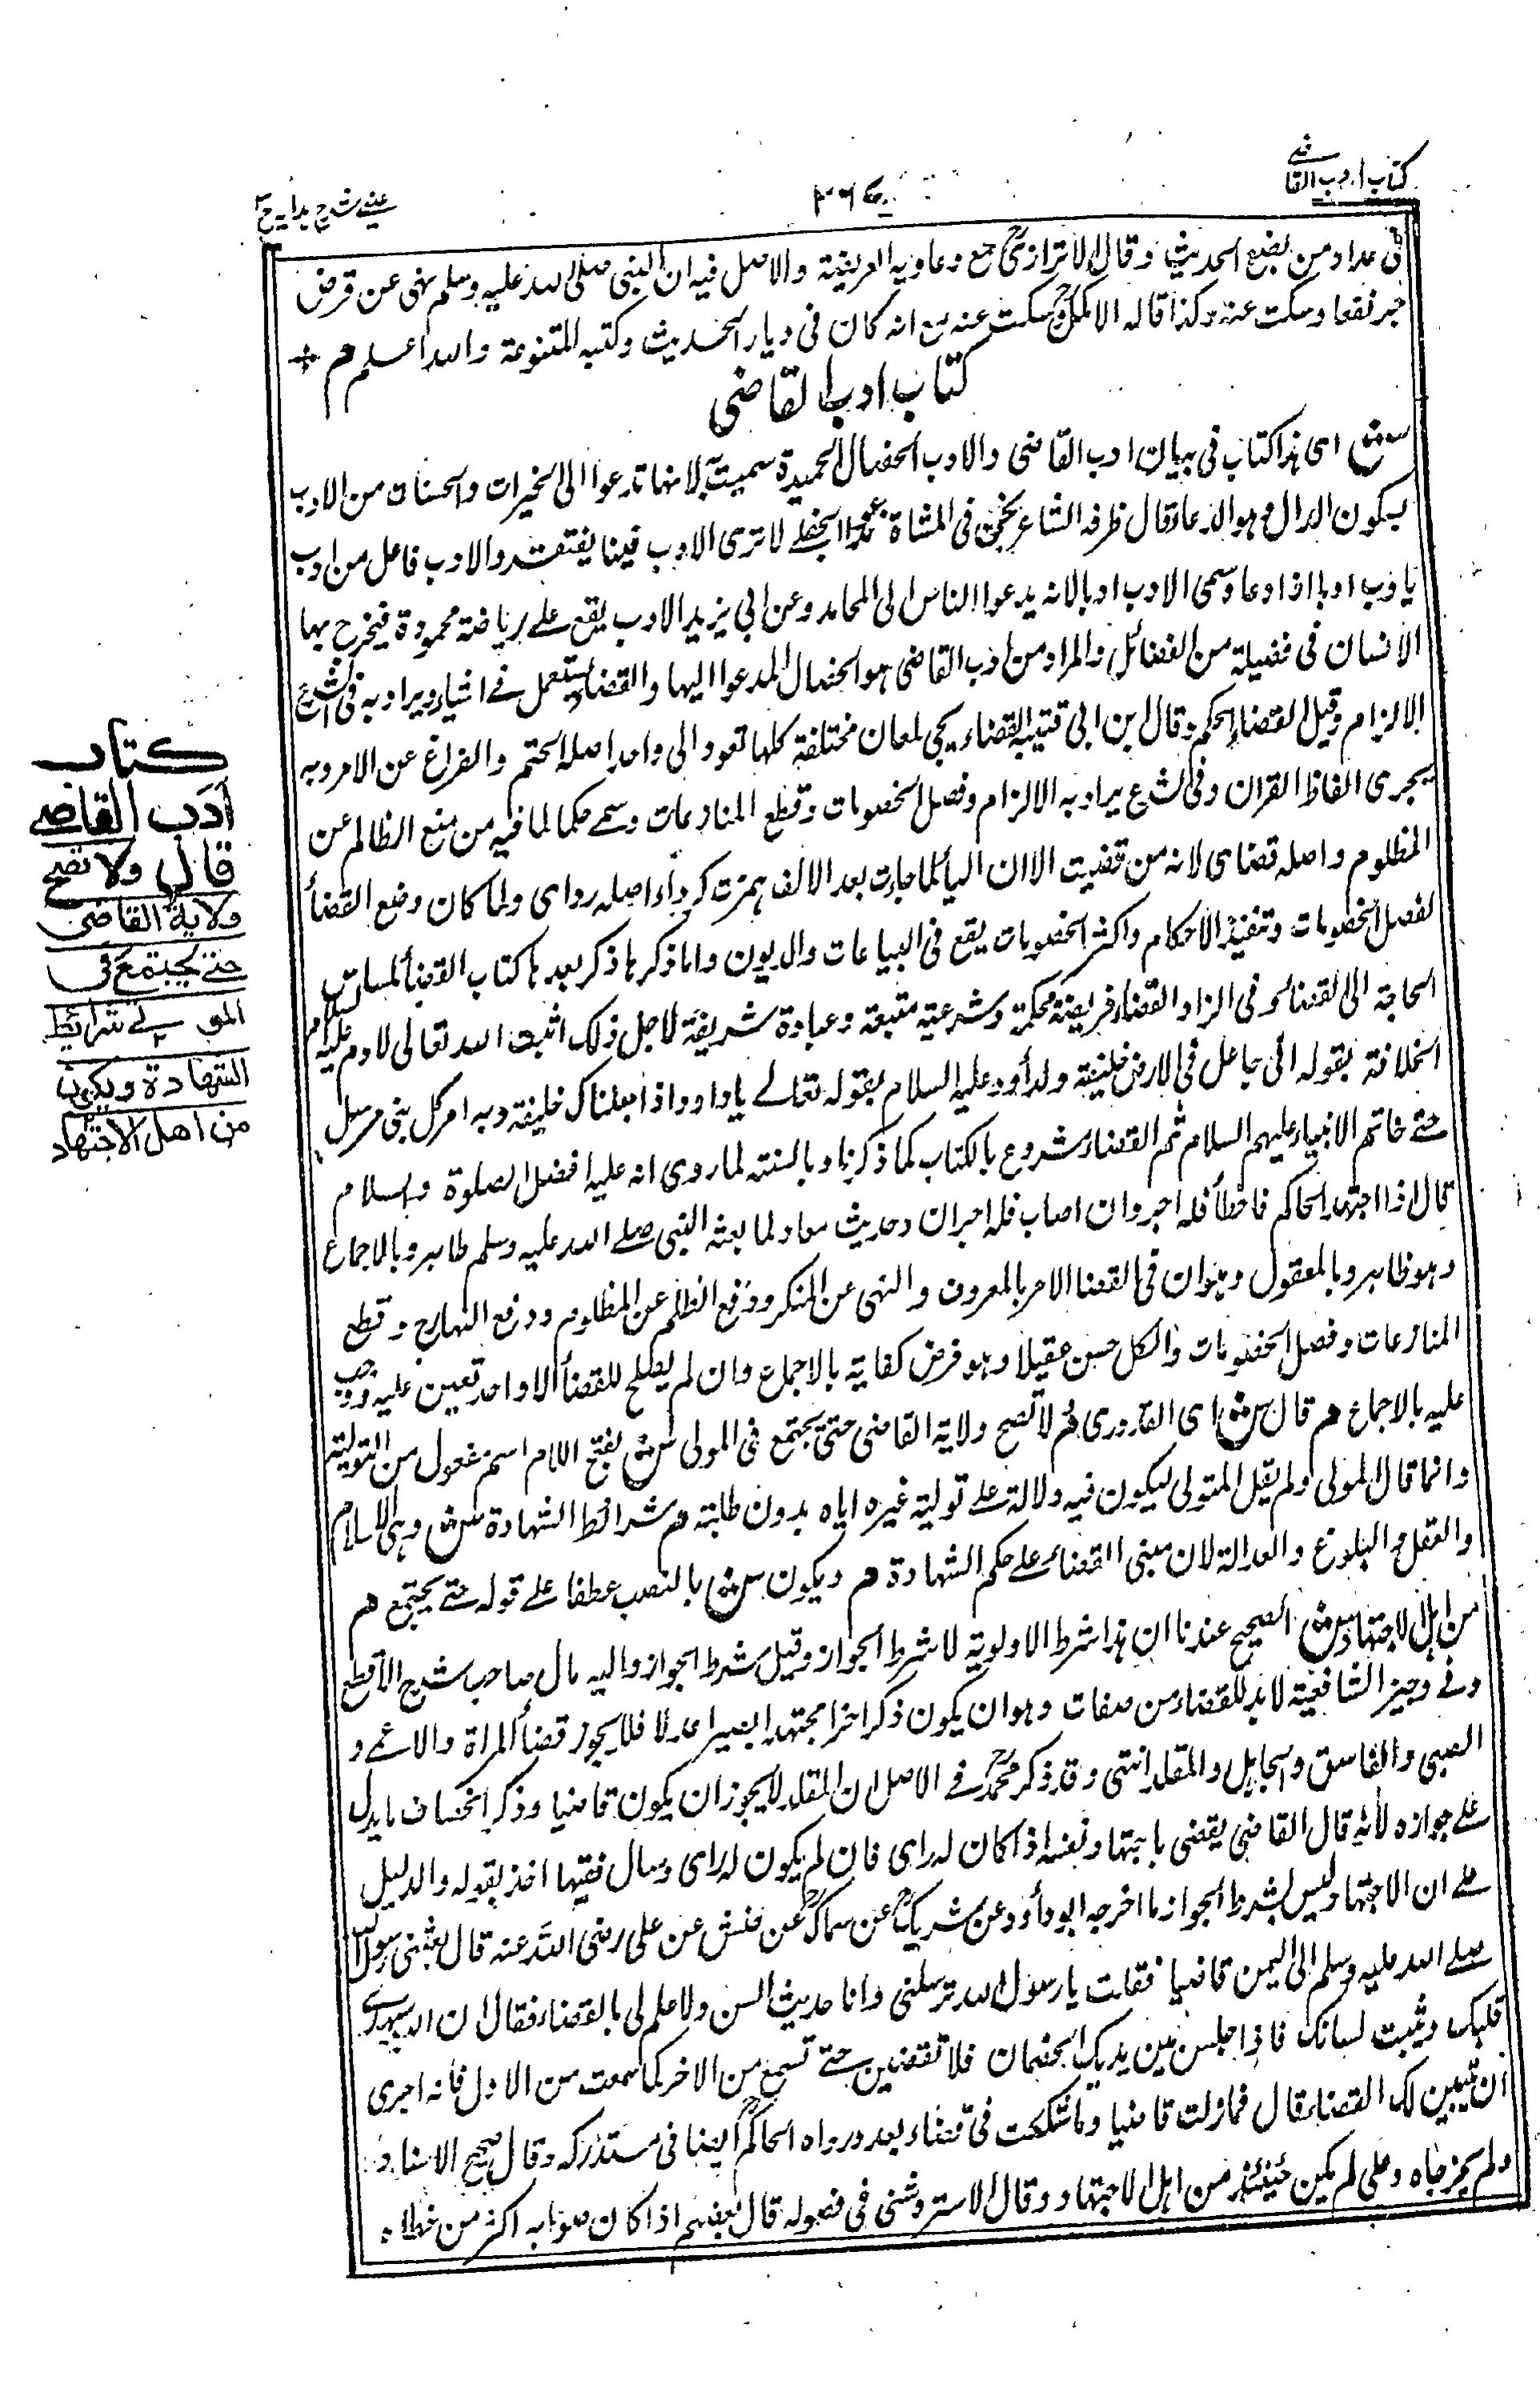 كتاب ادب القاضى
عينى شرح هدايه ج ٣
فى عداد من يضع الحديث وقال الاترازى جمع دعاويه العريضة والاصل فيه ان النبى صلى الله عليه وسلم نهى عن قرض
جر نفعا وسكت عنه وكذا قاله الاكمل وسكت عنه مع انه كان فى ديار الحديث وكتبه المتنوعة والله اعلم م +
كتاب ادب القاضى
ش اى هذا كتاب فى بيان ادب القاضى والادب الخصال الحميدة سميت به لانها تدعوا الى الخيرات والحسنات من الادب
بسكون الدال وهو الدعاء وقال طرفه الشاعر نحن فى المشاة ندعوا الجفلى لا ترى الادب فينا ينتقر والادب فاعل من ادب
يادب ادبا اذا دعا وسمى الادب ادبا لانه يدعوا الناس الى المحامد وعن ابى يزيد الادب يقع على رياضة محمودة فيخرج بها
الانسان فى فضيلة من الفضائل والمراد من ادب القاضى هو الخصال المدعوا اليها والقضاء يستعمل فى اشياء ويراد به فى الشرع
الالزام وقيل القضاء الحكم وقال ابن ابى قتيبة القضاء يجى لمعان مختلفة كلها تعود الى واحد اصله الحتم والفراغ عن الامر وبه
يجرى الفاظ القران وفى الشرع يراد به الالزام وفصل الخصومات وقطع المنازعات وسمى حكما لما فيه من منع الظالم عن
المظلوم واصله قضاى لانه من قضيت الا ان اليأ لما جاءت بعد الالف همزت كرداء اصله رداى ولما كان وضع القضأ
لفصل الخصومات وتنفيذ الاحكام واكثر الخصومات يقع فى البياعات والديون واما ذكرها ذكر بعدها كتاب القضأ لمساس
الحاجة الى القضاء وفى الزاد القضاء فريضة محكمة وشرعية متبعة وعبادة شريفة لاجل ذلك اثبت الله تعالى لادم عليه السلام
الخلافة بقوله انى جاعل فى الارض خليفة ولداود عليه السلام بقوله تعالى ياداود انا جعلناك خليفة وبه امر كل نبى مرسل
حتى خاتم الانبياء عليهم السلام ثم القضاء مشروع بالكتاب كما ذكرنا وبالسنة لما روى انه عليه افضل الصلوة والسلام
قال اذا اجتهد الحاكم فاخطأ فله اجر وان اصاب فله اجران وحديث معاذ لما بعثه النبى صلى الله عليه وسلم ظاهر وبالاجماع
وهو ظاهر وبالمعقول وهو ان فى القضا الامر بالمعروف والنهى عن المنكر ودفع الظلم عن المظلوم ودفع التهارج وقطع
المنازعات وفصل الخصومات والكل حسن عقلا وهو فرض كفاية بالاجماع وان لم يصلح للقضأ الا واحد تعين عليه ووجب
عليه بالاجماع م قال ش اى القدورى م لا تصح ولاية القاضى حتى يجتمع فى المولى ش بفتح اللام اسم مفعول من التولية
وانما قال المولى ولم يقل المتولى ليكون فيه دلالة على تولية غيره اياه بدون طلبته م شرائط الشهادة ش وهى الاسلام
والعقل والبلوغ والعدالة لان مبنى القضاء على حكم الشهادة م ويكون ش بالنصب عطفا على قوله حتى يجتمع م
من اهل الاجتهاد ش الصحيح عندنا ان هذا شرط الاولوية لا شرط الجواز وقيل شرط الجواز واليه مال صاحب شرح الاقطع
وفى وجيز الشافعية لا بد للقضاء من صفات وهو ان يكون ذكرا حرا مجتهدا بصيرا عدلا فلا يجوز قضأ المراة والاعمى و
الصبى والفاسق والجاهل والمقلد انتهى وقد ذكر محمد فى الاصل ان المقلد لا يجوز ان يكون قاضيا وذكر الخصاف ما يدل
على جوازه لأنه قال القاضى يقضى باجتهاد نفسه اذا كان له راى فان لم يكون له راى وسال فقيها اخذ بقوله والدليل
على ان الاجتهاد ليس بشرط الجواز ما اخرجه ابو داود عن شريك عن سماك عن حنش عن على رضى الله عنه قال بعثنى رسول الله
صلى الله عليه وسلم الى اليمن قاضيا فقلت يا رسول الله ترسلنى وانا حديث السن ولا علم لى بالقضاء فقال ان الله سيهدى
قلبك ويثبت لسانك فاذا جلس بين يديك الخصمان فلا تقضين حتى تسمع من الاخر كما سمعت من الاول فانه احرى
ان يتبين لك القضاء قال فمازلت قاضيا وما شككت فى قضاء بعد ورواه الحاكم ايضا فى مستدركه وقال صحيح الاسناد
ولم يخرجاه وعلى لم يكن حينئذ من اهل الاجتهاد وقال الاستروشنى فى فصوله قال بعضهم اذا كان صوابه اكثر من خطاءه
كتاب
أدب القاضى
قال ولا تصح
ولاية القاضى
حتى يجتمع فى
المولى شرائط
الشهادة ويكون
من اهل الاجتهاد